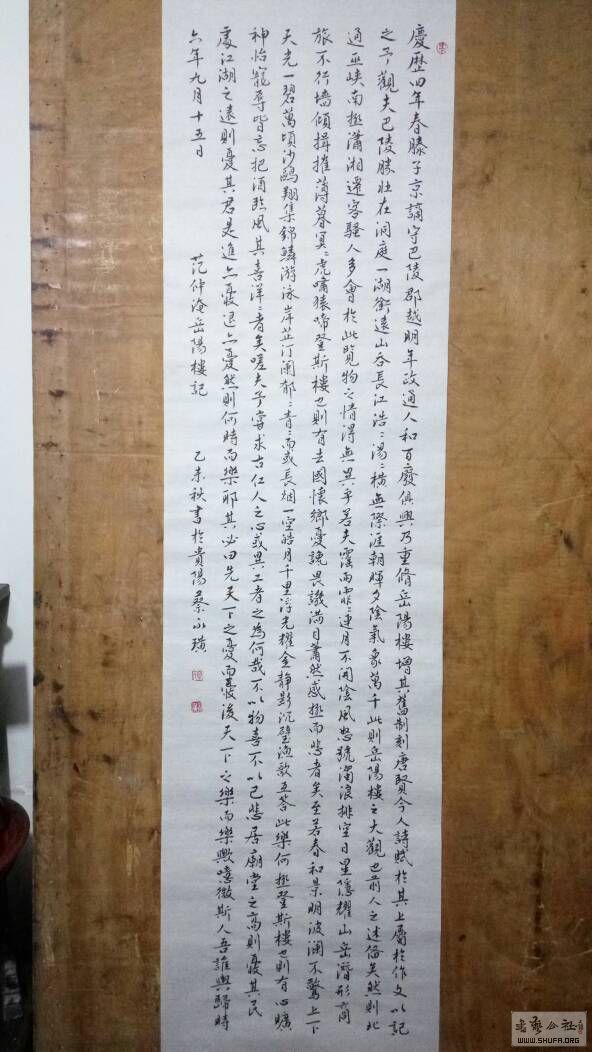 慶歷四年春滕子京謫守巴陵郡越明年政通人和百廢俱興乃重脩岳陽樓增其舊制刻唐賢今人詩賦於其上屬於作文以記
之予觀夫巴陵勝壯在洞庭一湖銜遠山吞長江浩〻湯〻橫無際涯朝暉夕陰氣象萬千此則岳陽樓之大觀也前人之述備矣然則北
通巫峽南極瀟湘遷客騷人多會於此覽物之情得無異乎若夫霪雨霏〻連月不開陰風怒號濁浪排空日星隱耀山岳潛形商
旅不行檣傾楫摧薄暮冥〻虎嘯猿啼登斯樓也則有去國懷鄉憂讒畏譏滿目蕭然感極而悲者矣至若春和景明波瀾不驚上下
天光一碧萬頃沙鷗翔集錦鱗游泳岸芷汀蘭郁〻青〻而或長烟一空皓月千里浮光耀金靜影沉璧漁歌互答此樂何極登斯樓也則有心曠
神怡寵辱皆忘把酒臨風其喜洋〻者矣嗟夫予嘗求古仁人之心或異二者之為何哉不以物喜不以己悲居廟堂之高則憂其民
處江湖之遠則憂其君是進亦憂退亦憂然則何時而樂耶其必曰先天下之憂而憂後天下之樂而樂歟噫微斯人吾誰與歸時
六年九月十五日
范仲淹岳陽樓記
乙未秋書於貴陽蔡永璜
WWW.SHUFA.ORG